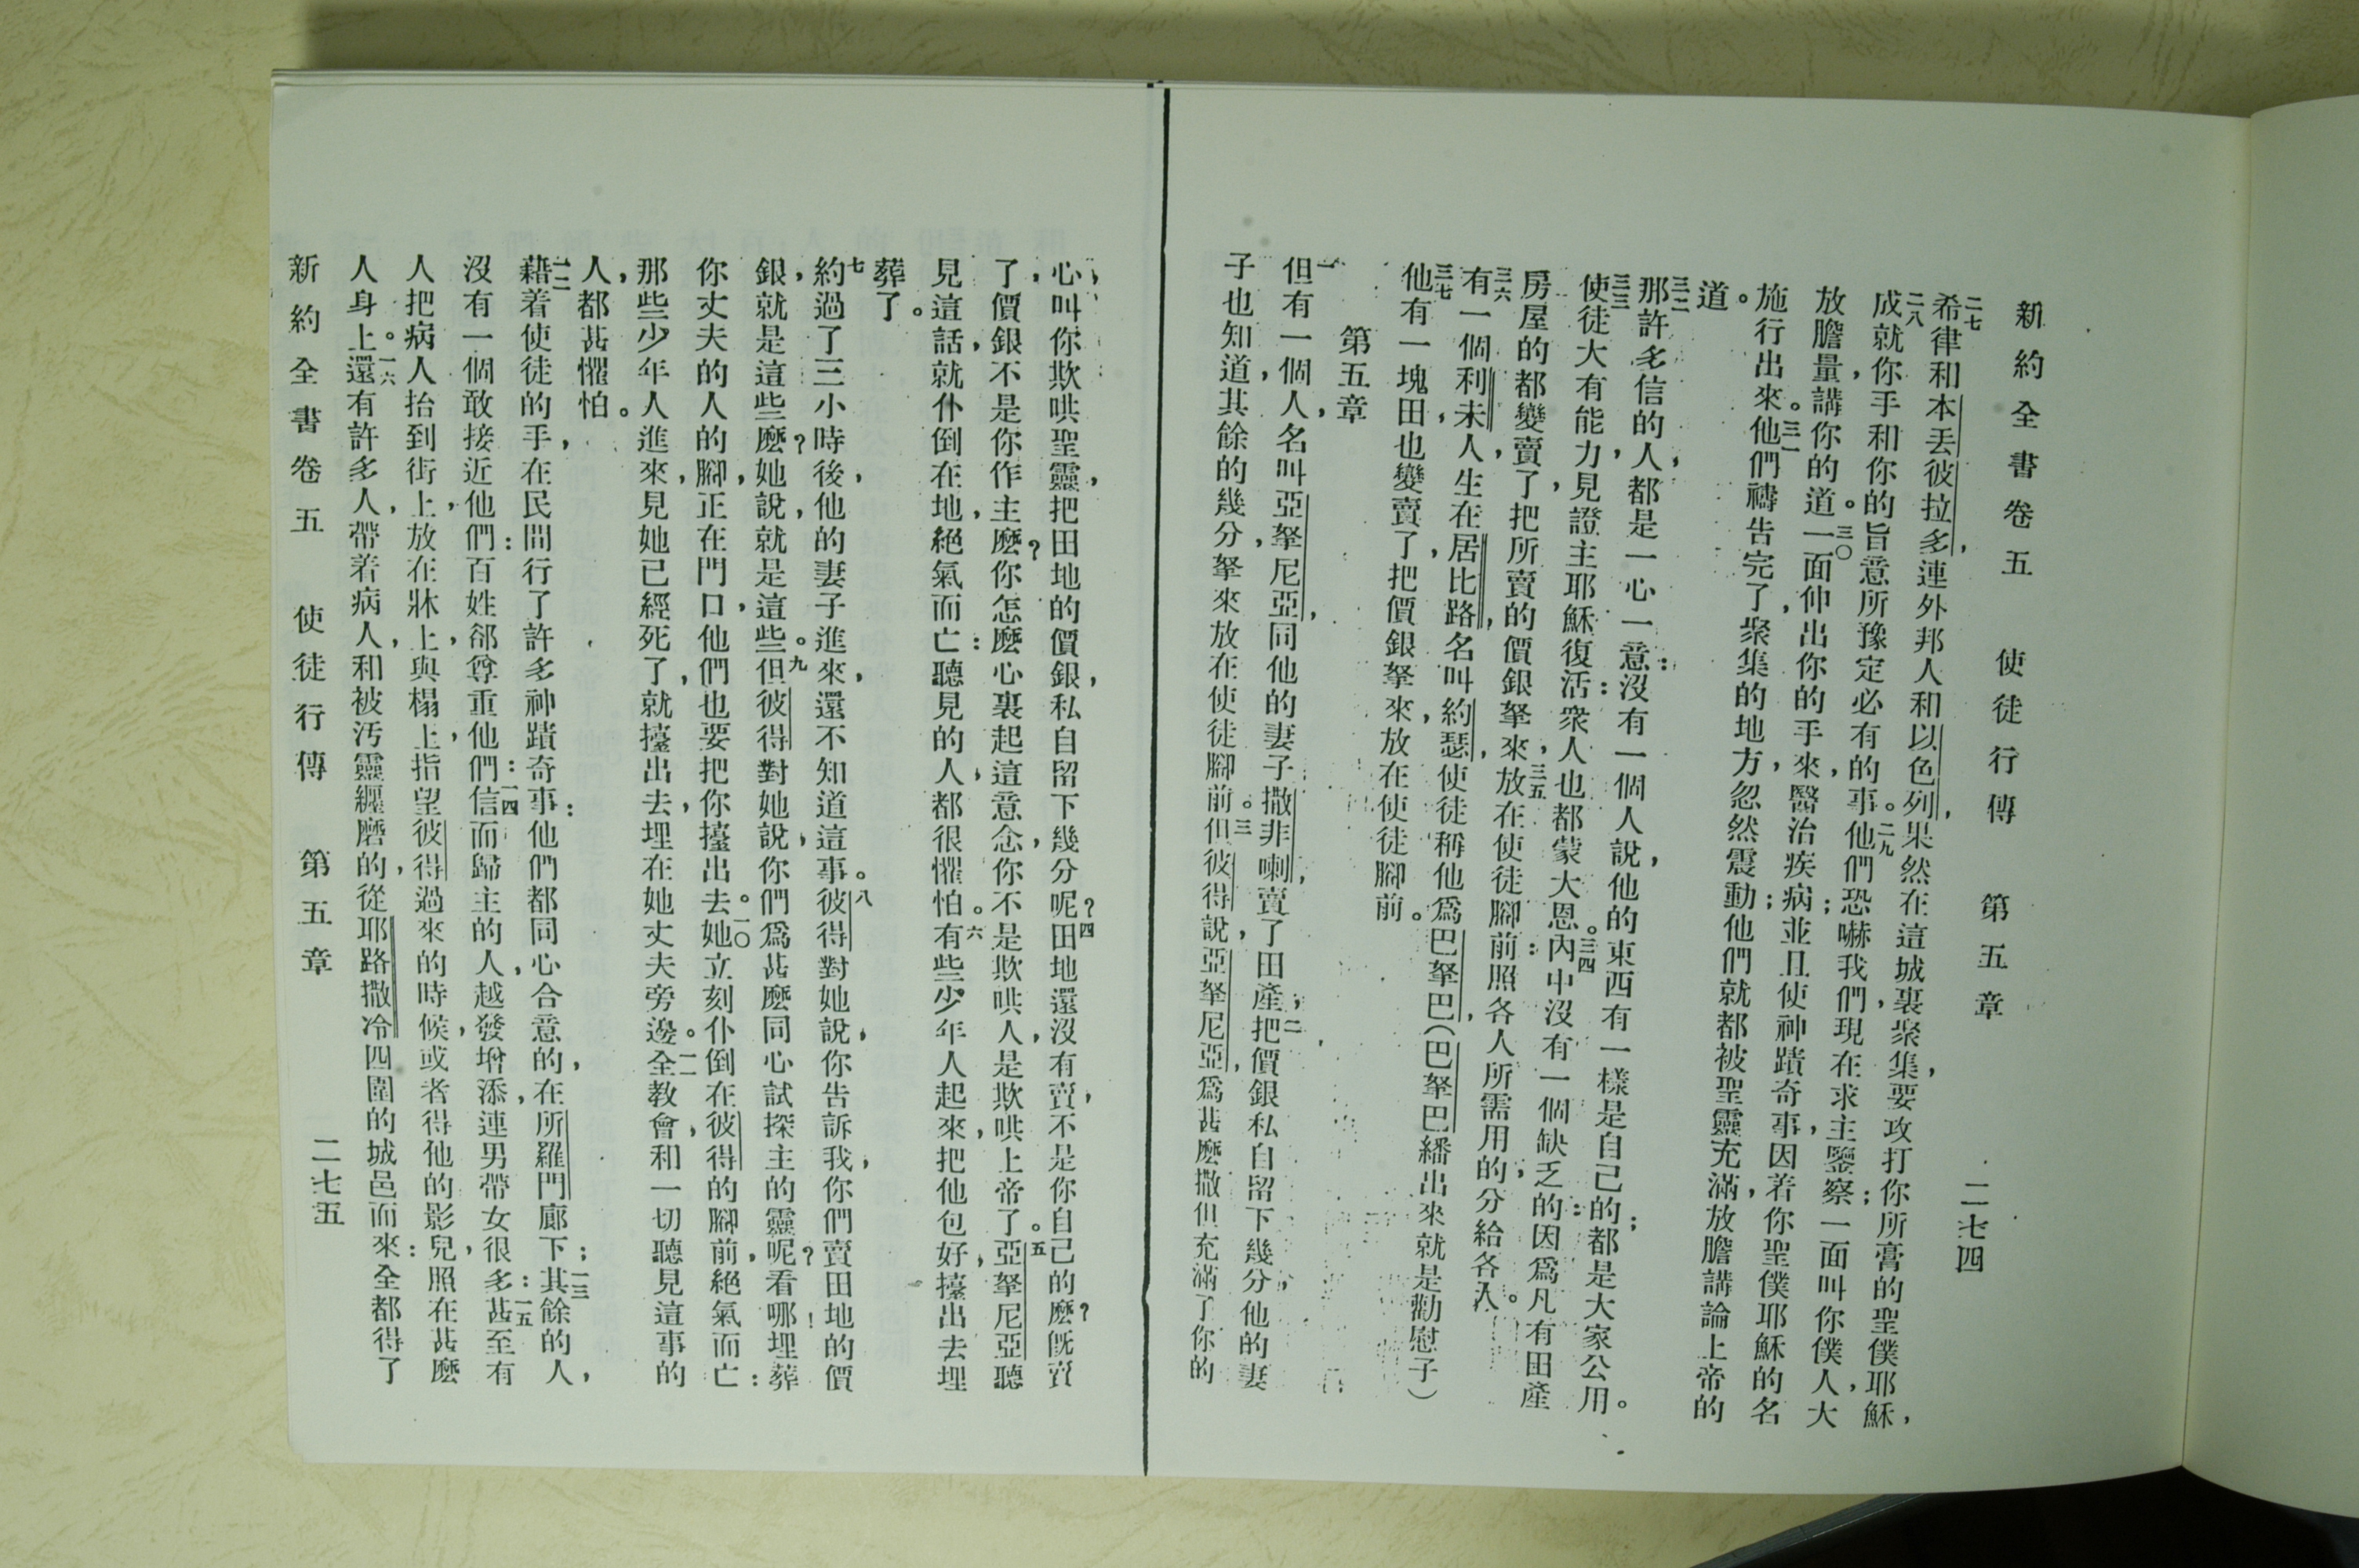 新約全書卷五　使徒行傳　第五章　二七四
二七希律和本丟彼拉多，連外邦人和以色列，果然在這城裏聚集，要攻打你所膏的聖僕耶穌，
二八成就你手和你的旨意所豫定必有的事。二九他們恐嚇我們，現在求主鑒察；一面叫你僕人，大
放膽量，講你的道。三〇一面伸出你的手來，醫治疾病；並且使神蹟奇事，因若你聖僕耶穌的名
施行出來。三一他們禱告完了，聚集的地方，忽然震動；他們就都被聖靈充滿，放膽講論上帝的
道。
三二那許多信的人，都是一心一意：沒有一個人說，他的東西有一樣是自己的；都是大家公用。
三三使徒大有能力，見證主耶穌復活：衆人也都蒙大恩。三四內中沒有一個缺乏的：因爲凡有田產
房屋的，都變賣了，把所賣的價銀拏來，三五放在使徒腳前：照各人所需用的，分給各人。
三六有一個利未人，生在居比路，名叫約瑟，使徒稱他爲巴拏巴，（巴拏巴繙出來就是勸慰子）
三七他有一塊田，也變賣了，把價銀拏來，放在使徒腳前。
第五章
一但有一個人，名叫亞拏尼亞，同他的妻子撒非喇，賣了田產，二把價銀私自留下幾分，他的妻
子也知道，其餘的幾分，拏來放在使徒腳前。三但彼得說，亞拏尼亞，爲甚麼撒但充滿了你的
心，叫你欺哄聖靈，把田地的價銀，私自留下幾分呢？四田地還沒有賣，不是你自己的麼？旣賣
了，價銀不是你作主麼？你怎麼心裏起這意念，你不是欺哄人，是欺哄上帝了。五亞拏尼亞聽
見這話，就仆倒在地，絕氣而亡：聽見的人，都很懼怕。六有些少年人起來，把他包好，擡出去埋
葬了。
七約過了三小時後，他的妻子進來，還不知道這事。八彼得對她說，你告訴我，你們賣田地的價
銀，就是這些麼？她說，就是這些。九但彼得對她說，你們爲甚麼同心試探主的靈呢？看哪！埋葬
你丈夫的人的腳，正在門口，他們也要把你擡出去。一〇她立刻仆倒在彼得的腳前，絕氣而亡：
那些少年人進來，見她已經死了，就擡出去，埋在她丈夫旁邊。一一全教會，和一切聽見這事的
人，都甚懼怕。
一二藉着使徒的手，在民間行了許多神蹟奇事：他們都同心合意的，在所羅門廊下；一三其餘的人，
沒有一個敢接近他們：百姓卻尊重他們：一四信而歸主的人，越發增添，連男帶女很多：一五甚至有
人把病人抬到街上，放在牀上，與榻上，指望彼得過來的時候，或者得他的影兒，照在甚麼
人身上。一六還有許多人，帶着病人，和被汚靈纏磨的，從耶路撒冷四圍的城邑而來：全都得了
新約全書卷五　使徒行傳　第五章　二七五